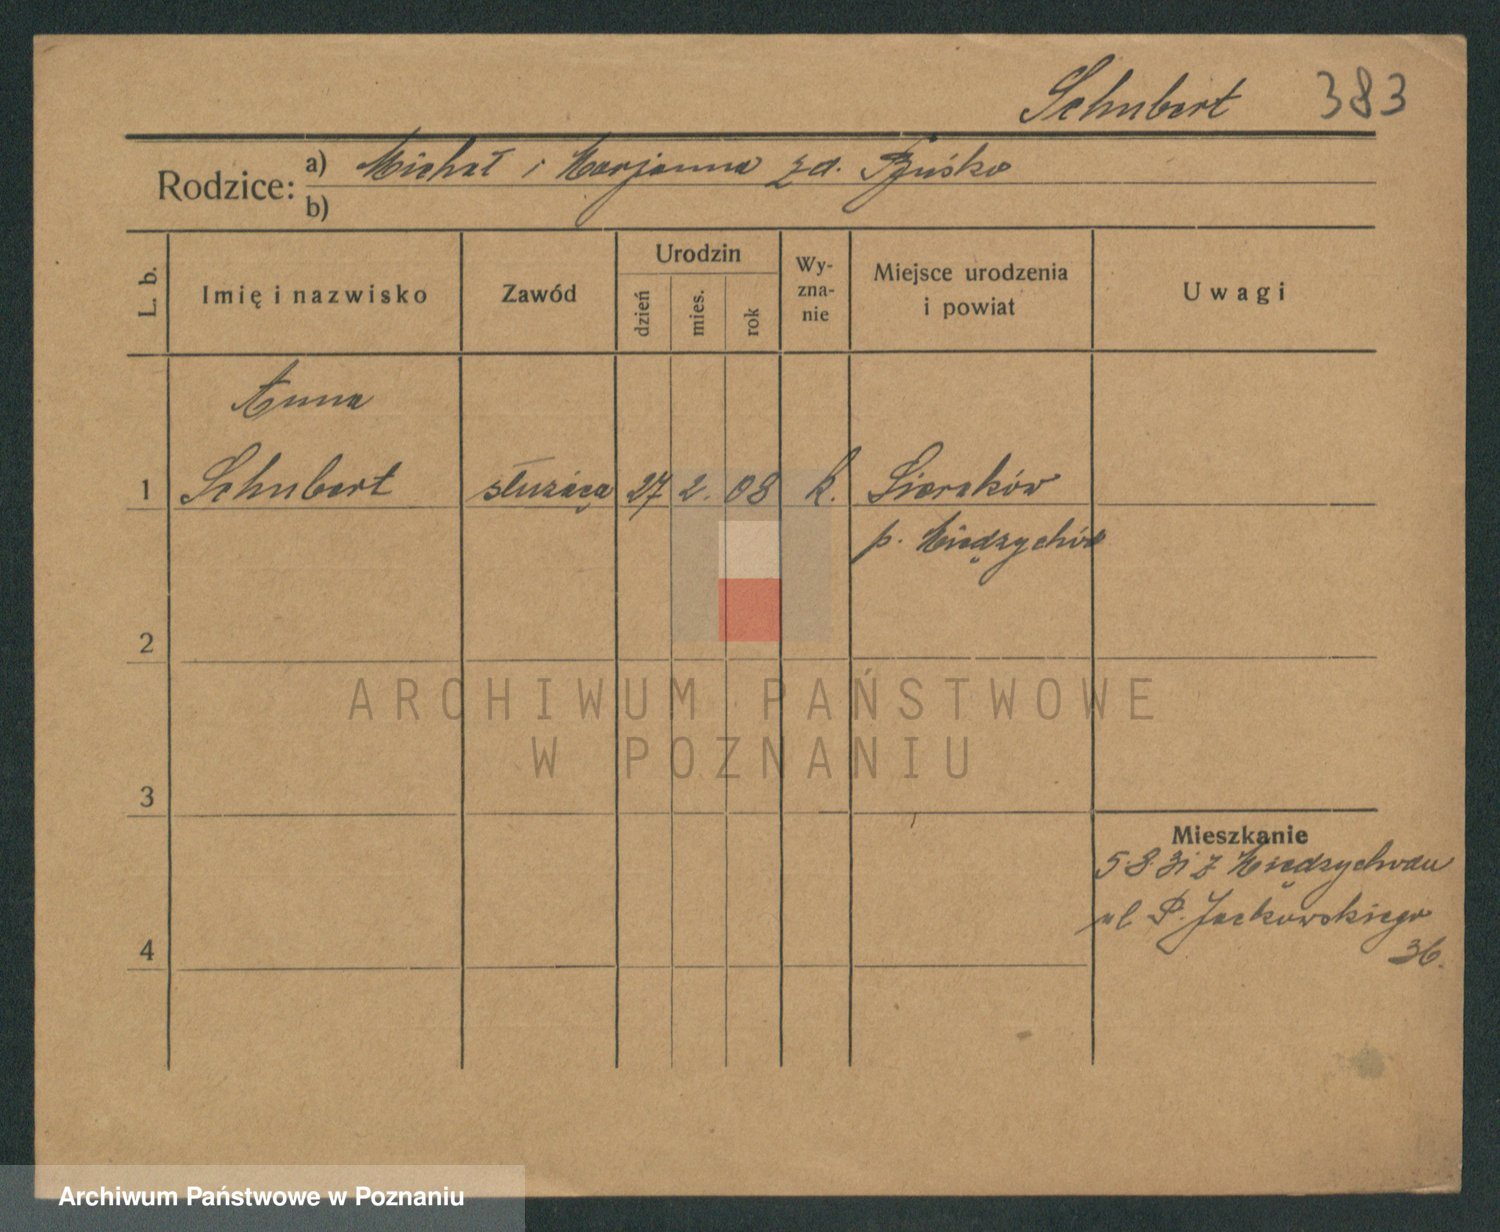 Schubert 383
Rodzice: a) Michał i Marjanna zd.
b)
L. b.
Imię i nazwisko
Zawód
Urodzin
dzień
mies.
rok
Wy-
zna-
nie
Miejsce urodzenia
i powiat
Uwagi
Anna
1 Schubert służąca 27 2. 08 k. Sieraków
p. Międzychód
2
3
4
Mieszkanie
5 8 31 z Międzychodu
ul P. Jackowskiego
36.
ARCHIWUM PAŃSTWOWE
W POZNANIU
Archiwum Państwowe w Poznaniu